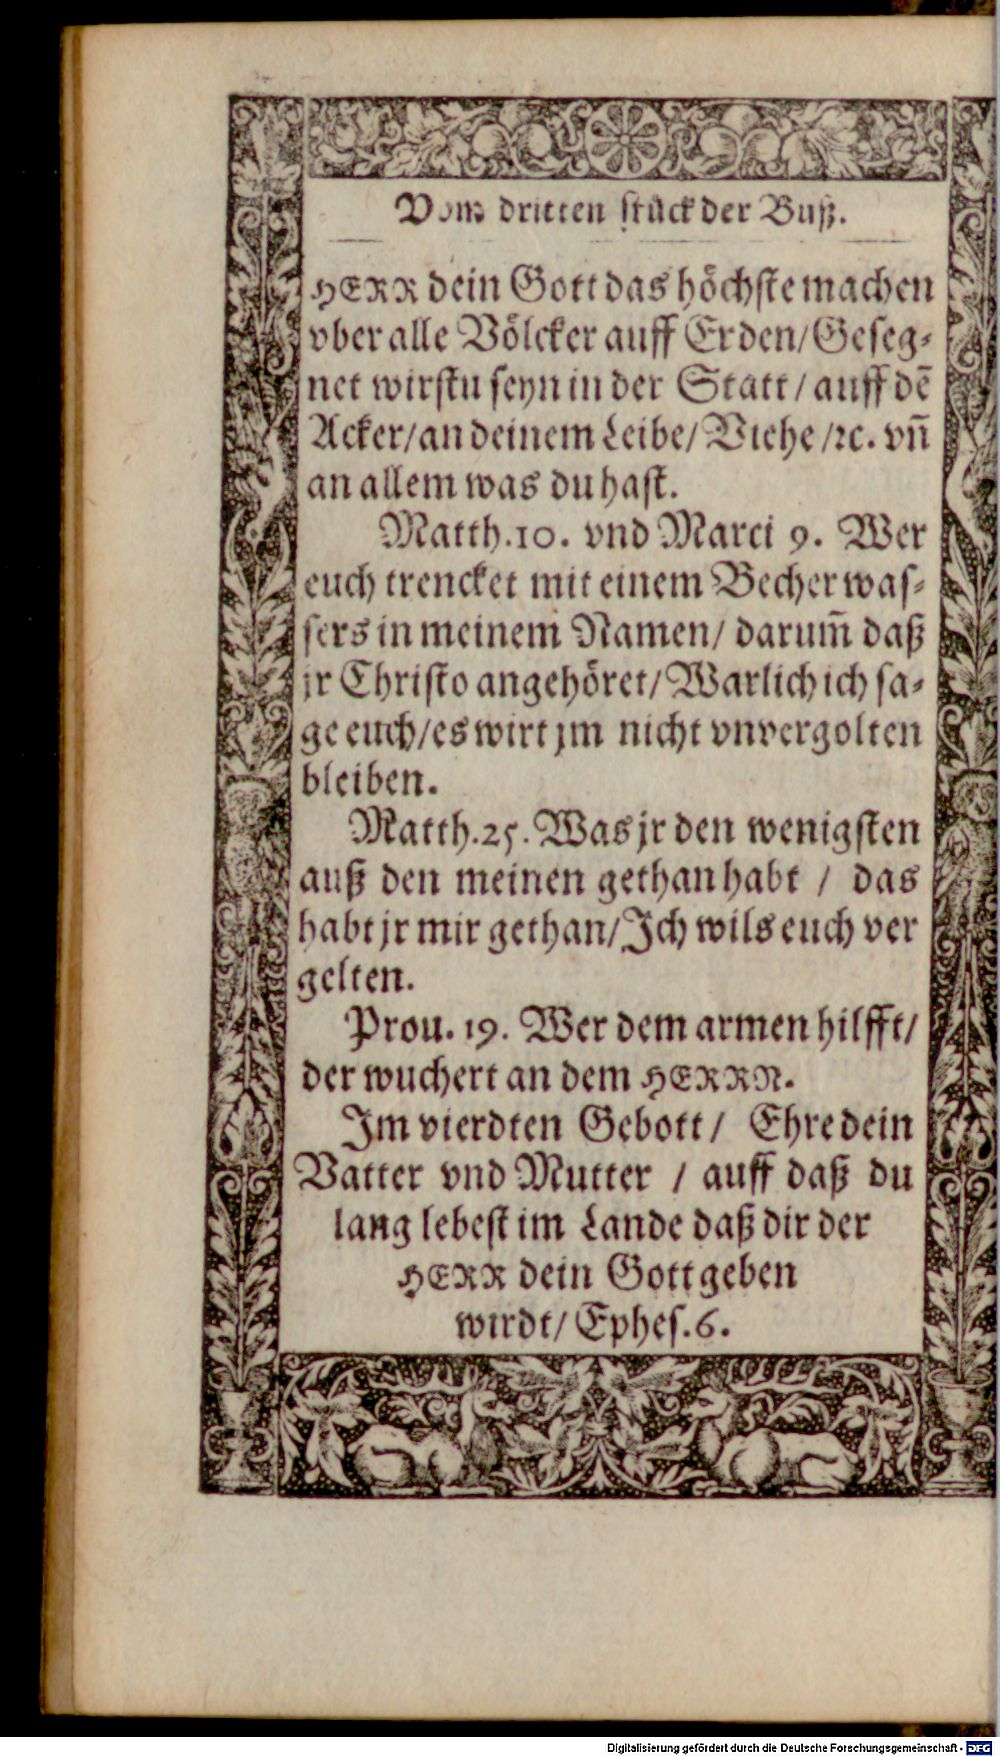 Vom dritten stück der Buß.
HERR dein Gott das höchste machen
vber alle Völcker auff Erden/ Geseg-
net wirstu seyn in der Statt/ auff dē
Acker/ an deinem Leibe/ Viehe/ ꝛc. vñ
an allem was du hast.
Matth. 10. vnd Marci 9. Wer
euch trencket mit einem Becher was-
sers in meinem Namen/ darum̃ daß
jr Christo angehöret/ Warlich ich sa-
ge euch/ es wirt jm nicht vnvergolten
bleiben.
Matth. 25. Was jr den wenigsten
auß den meinen gethan habt / das
habt jr mir gethan/ Ich wils euch ver
gelten.
Prou. 19. Wer dem armen hilfft/
der wuchert an dem HERRN.
Im vierdten Gebott/ Ehre dein
Vatter vnd Mutter / auff daß du
lang lebest im Lande daß dir der
HERR dein Gott geben
wirdt/ Ephes. 6.
Digitalisierung gefördert durch die Deutsche Forschungsgemeinschaft - DFG